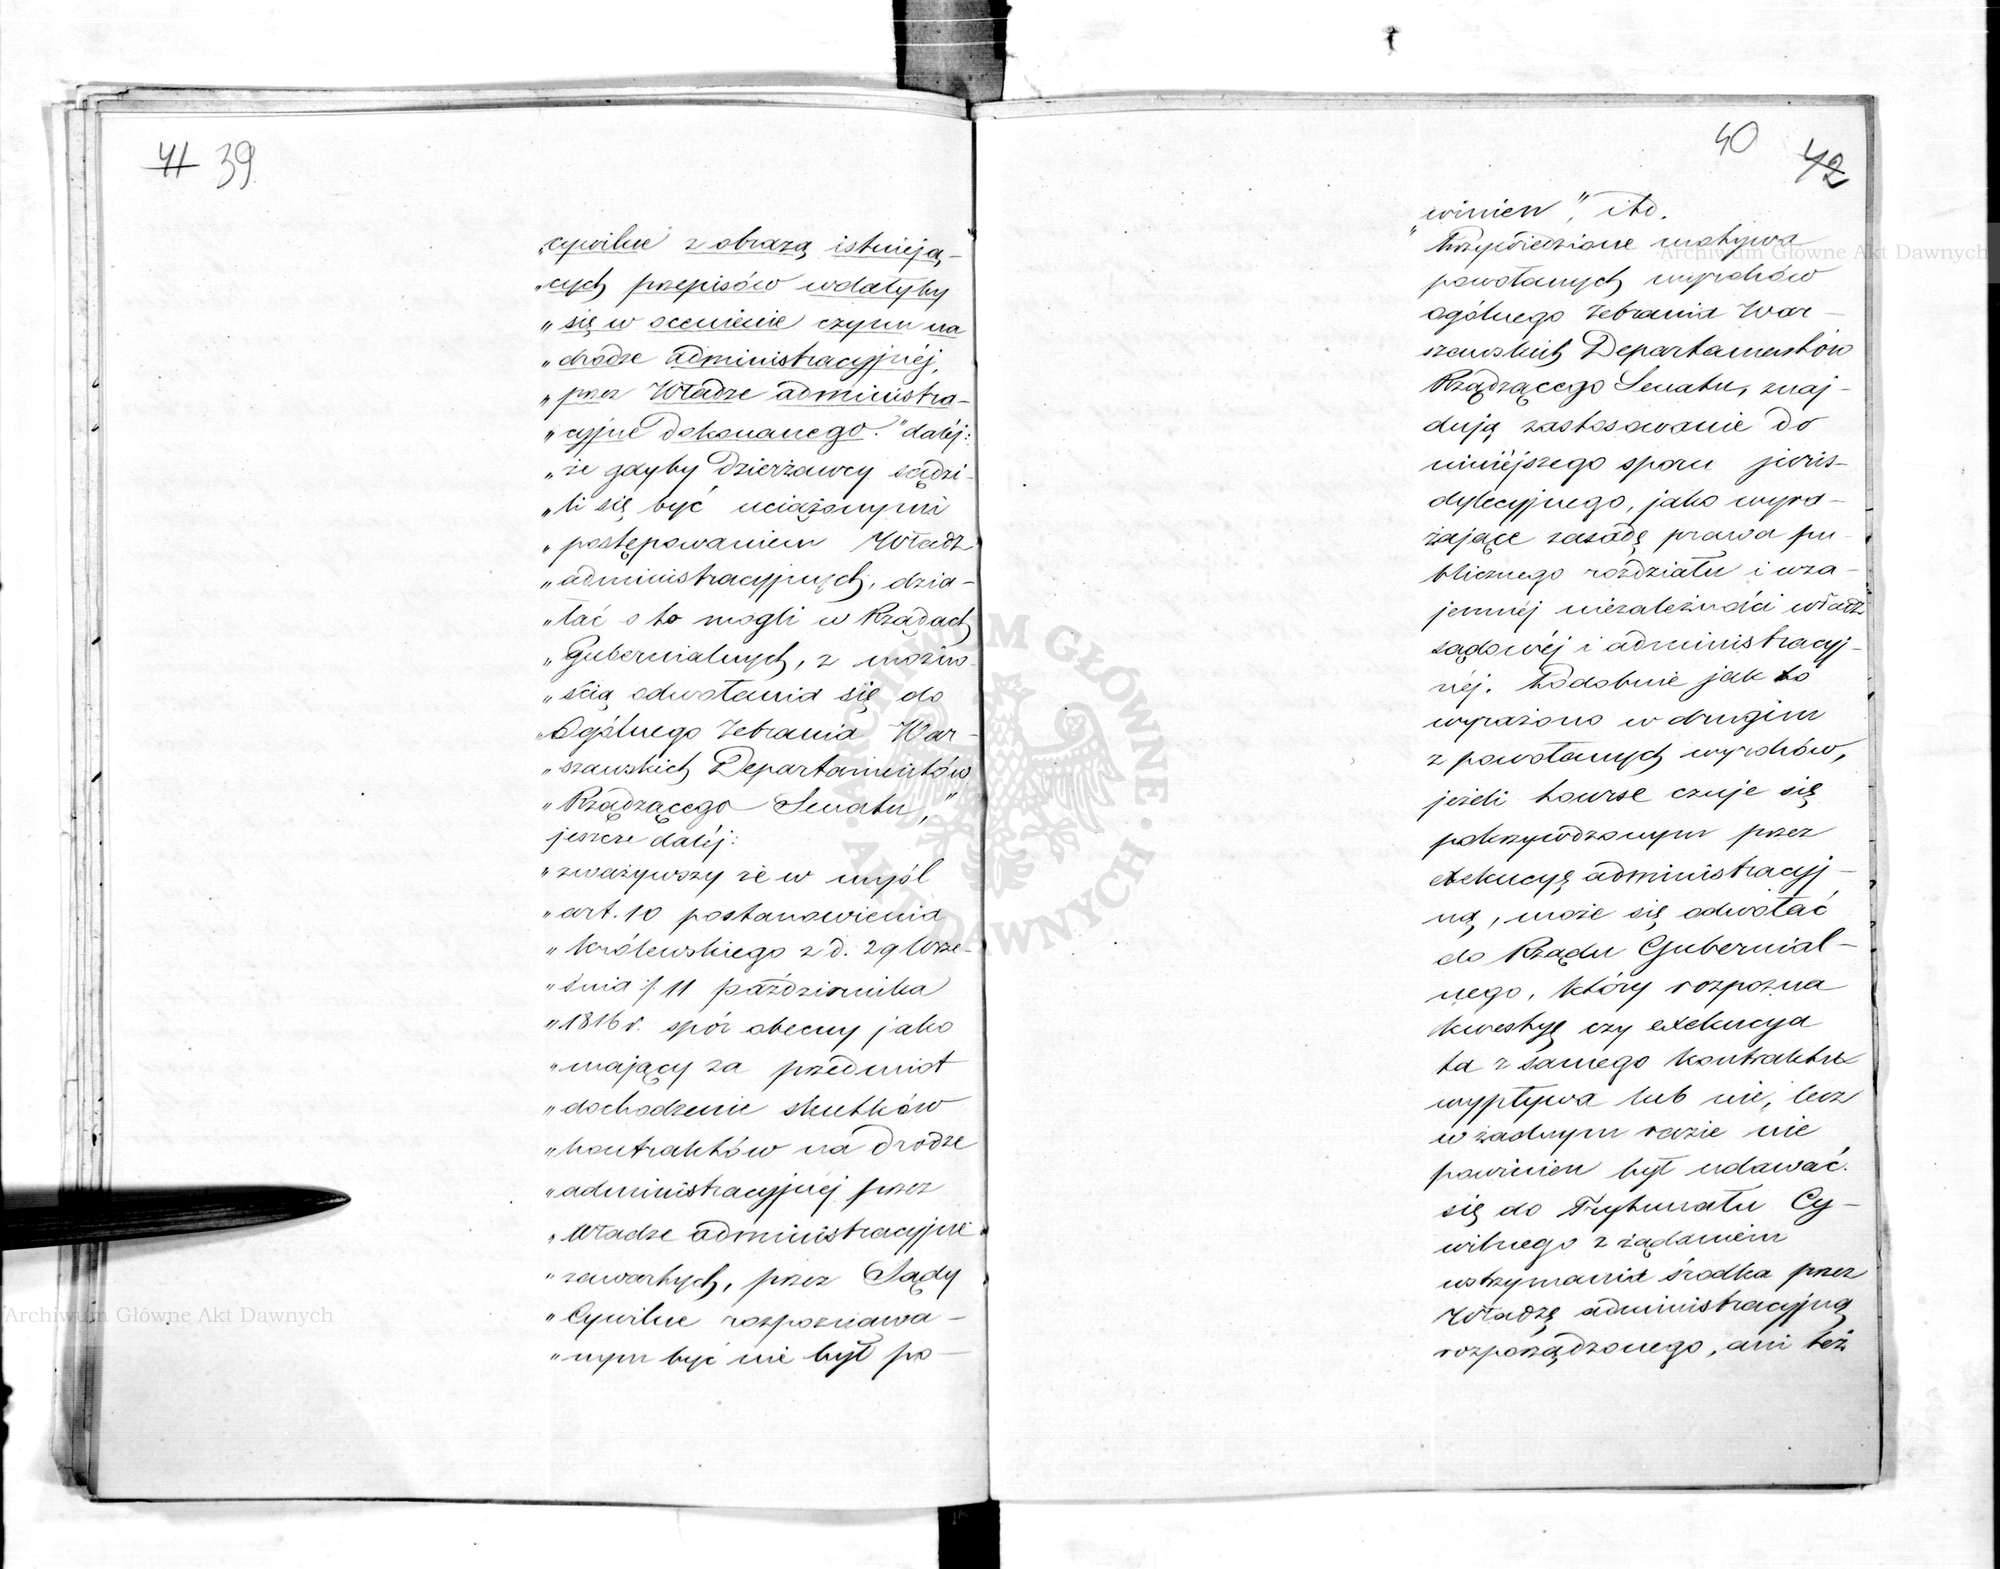 41 39
„cywilne z obrazą istnieją-
„cych przepisów wdałyby
„się w ocenienie czynu na
„drodze administracyjnéj,
„przez Władze administra-
„cyjne dokonanego." daléj:
„że gdyby dzierżawcy sądzi-
„li się być uciążonymi
„postępowaniem Władz
„administracyjnych, dzia-
„łać o to mogli w Rządach
„Gubernialnych, z możno-
„ścią odwołania się do
„Ogólnego Zebrania War-
„szawskich Departamentów
„Rządzącego Senatu,"
jeszcze daléj:
„zważywszy że w myśl
„art. 10 postanowienia
„Królewskiego z d. 29 Wrze-
„śnia /. 11 października
„1816 r. spór obecny jako
„mający za przedmiot
„dochodzenie skutków
„kontraktów na drodze
„administracyjnéj przez
„Władze administracyjne
„zawartych, przez Sądy
„Cywilne rozpoznawa-
„nym być nie był po-
40 42
„winien", itd.
Przywiedzione motywa
powołanych wyroków
ogólnego Zebrania War-
szawskich Departamentów
Rządzącego Senatu, znaj-
dują zastosowanie do
niniéjszego sporu juris-
dykcyjnego, jako wyra-
żające zasadę prawa pu-
blicznego rozdziału i wza-
jemnéj niezależności władz
sądowéj i administracyj-
néj. Podobnie jak to
wyrażono w drugim
z powołanych wyroków,
jeżeli Howrse czuje się
pokrzywdzonym przez
exekucyę administracyj-
ną, może się odwołać
do Rządu Gubernial-
nego, który rozpozna
kwestyę czy exekucya
ta z samego kontraktu
wypływa lub nie, lecz
w żadnym razie nie
powinien był udawać
się do Trybunału Cy-
wilnego z żądaniem
wstrzymania środka przez
Władzę administracyjną
rozporządzonego, ani też
Archiwum Główne Akt Dawnych
Archiwum Główne Akt Dawnych
ARCHIWUM GŁÓWNE · AKT DAWNYCH ·